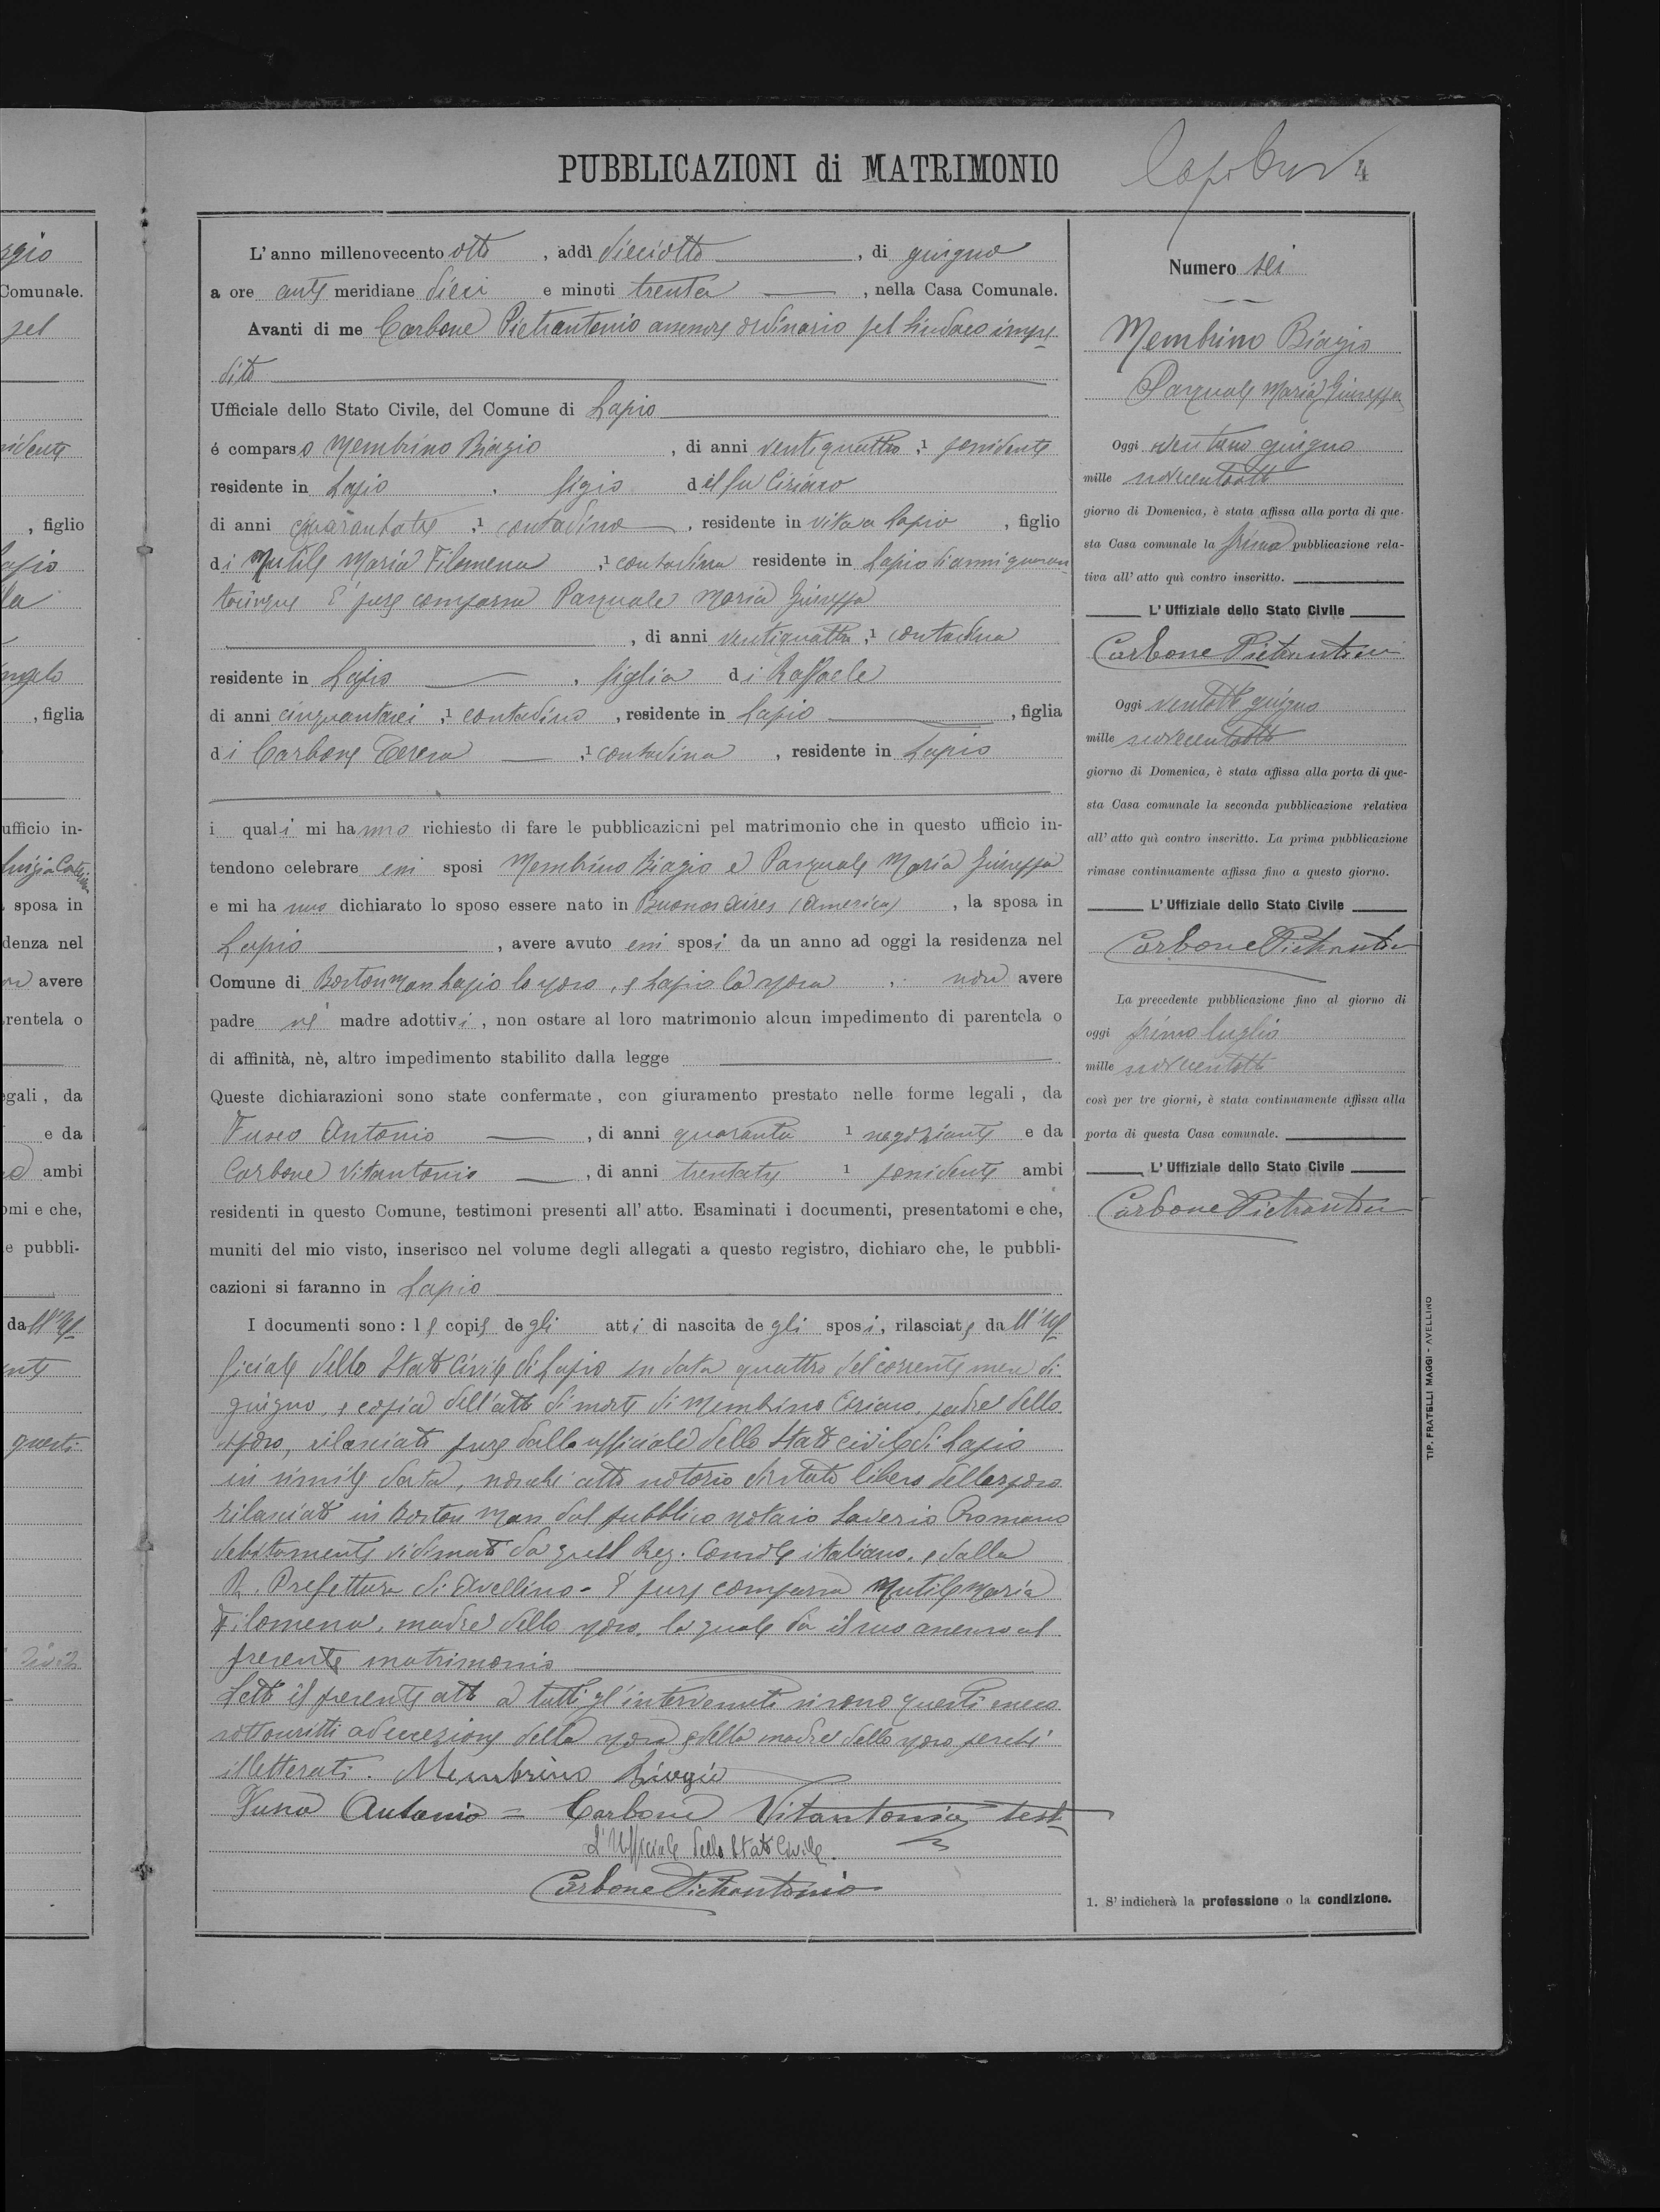 PUBBLICAZIONI di MATRIMONIO
4
L'anno millenovecento otto, addì dieciotto, di giugno
a ore ante meridiane dieci e minuti trenta, nella Casa Comunale.
Avanti di me Carbone Pietrantonio assessore ordinario pel Sindaco impe
dito
Ufficiale dello Stato Civile, del Comune di Lapio
é comparso Membrino Biagio, di anni ventiquattro 1 possidente
residente in Lapio, figlio del fu Ciriaco
di anni quarantatre 1 contadino, residente in vita a Lapio, figlio
di Mutile Maria Filomena 1 contadina residente in Lapio di anni quaran
tacinque È pure comparsa Pasquale Maria Giuseppa
, di anni ventiquattro 1 contadina
residente in Lapio, figlia di Raffaele
di anni cinquantasei 1 contadino, residente in Lapio, figlia
di Carbone Teresa 1 contadina, residente in Lapio
i quali mi hanno richiesto di fare le pubblicazioni pel matrimonio che in questo ufficio in-
tendono celebrare essi sposi Membrino Biagio e Pasquale Maria Giuseppa
e mi hanno dichiarato lo sposo essere nato in Buenos Aires (America), la sposa in
Lapio, avere avuto essi sposi da un anno ad oggi la residenza nel
Comune di Boston Mass Lapio lo sposo, e Lapio la sposa, non avere
padre nè madre adottivi, non ostare al loro matrimonio alcun impedimento di parentela o
di affinità, nè, altro impedimento stabilito dalla legge
Queste dichiarazioni sono state confermate, con giuramento prestato nelle forme legali, da
Fusco Antonio, di anni quaranta 1 negoziante e da
Carbone Vitantonio, di anni trentatre 1 possidente ambi
residenti in questo Comune, testimoni presenti all'atto. Esaminati i documenti, presentatomi e che,
muniti del mio visto, inserisco nel volume degli allegati a questo registro, dichiaro che, le pubbli-
cazioni si faranno in Lapio
I documenti sono: le copie degli atti di nascita degli sposi, rilasciate dall'Uf
ficiale dello Stato Civile di Lapio in data quattro del corrente mese di
giugno, e copia dell'atto di morte di Membrino Ciriaco, padre dello
sposo, rilasciato pure dallo ufficiale dello Stato civile di Lapio
in simile data, nonchè atto notorio di stato libero dello sposo
rilasciato in Boston Mass dal pubblico notaio Saverio Romano
debitamente vidimato da quel Reg. Console italiano, e dalla
R. Prefettura di Avellino - È pure comparsa Mutile Maria
Filomena, madre dello sposo, la quale dà il suo assenso al
presente matrimonio
Letto il presente atto a tutti gl'intervenuti si sono questi meco
sottoscritti ad eccezione della sposa e della madre dello sposo perchè
illetterati. Membrino Biagio
Fusco Antonio = Carbone Vitantonio test
L'Ufficiale dello Stato Civile.
Carbone Pietrantonio
Numero sei
Membrino Biagio
Pasquale Maria Giuseppa
Oggi ventuno giugno
mille novecentootto
giorno di Domenica, è stata affissa alla porta di que-
sta Casa comunale la prima pubblicazione rela-
tiva all'atto quì contro inscritto.
L'Uffiziale dello Stato Civile
Carbone Pietrantonio
Oggi ventotto giugno
mille novecentootto
giorno di Domenica, è stata affissa alla porta di que-
sta Casa comunale la seconda pubblicazione relativa
all'atto quì contro inscritto. La prima pubblicazione
rimase continuamente affissa fino a questo giorno.
L'Uffiziale dello Stato Civile
Carbone Pietrantonio
La precedente pubblicazione fino al giorno di
oggi primo luglio
mille novecentotto
così per tre giorni, è stata continuamente affissa alla
porta di questa Casa comunale.
L'Uffiziale dello Stato Civile
Carbone Pietrantonio
1. S'indicherà la professione o la condizione.
TIP. FRATELLI MAGGI - AVELLINO
Comunale.
, figlio
, figlia
ufficio in-
sposa in
denza nel
avere
rentela o
egali, da
e da
ambi
omi e che,
e pubbli-
dall'Uf
questi